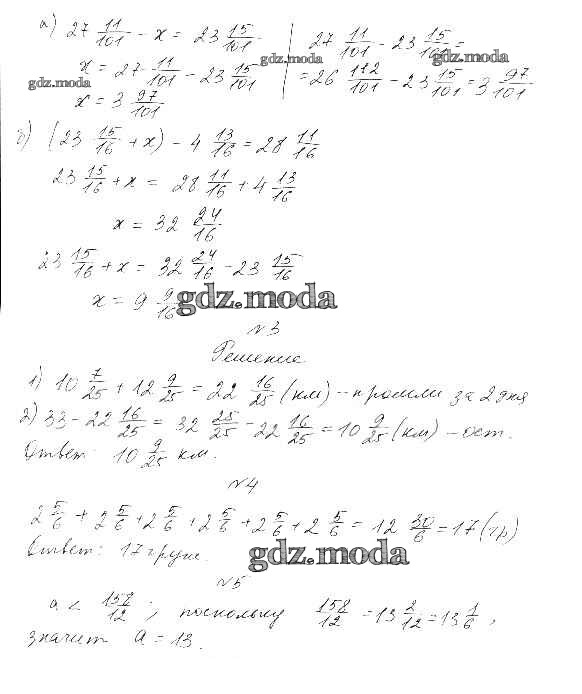 а) 27 11/101 - x = 23 15/101
x = 27 11/101 - 23 15/101
x = 3 97/101
27 11/101 - 23 15/101 =
= 26 112/101 - 23 15/101 = 3 97/101
gdz.moda
gdz.moda
gdz.moda
б) (23 15/16 + x) - 4 13/16 = 28 11/16
23 15/16 + x = 28 11/16 + 4 13/16
x = 32 24/16
23 15/16 + x = 32 24/16 - 23 15/16
x = 9 9/16
gdz.moda
№3
Решение
1) 10 7/25 + 12 9/25 = 22 16/25 (км) - прошли за 2 дня
2) 33 - 22 16/25 = 32 25/25 - 22 16/25 = 10 9/25 (км) - ост.
Ответ: 10 9/25 км.
№4
2 5/6 + 2 5/6 + 2 5/6 + 2 5/6 + 2 5/6 + 2 5/6 = 12 30/6 = 17 (гр)
Ответ: 17 груш.
gdz.moda
№5
a < 158/12 ; поскольку 158/12 = 13 2/12 = 13 1/6 ,
значит a = 13.